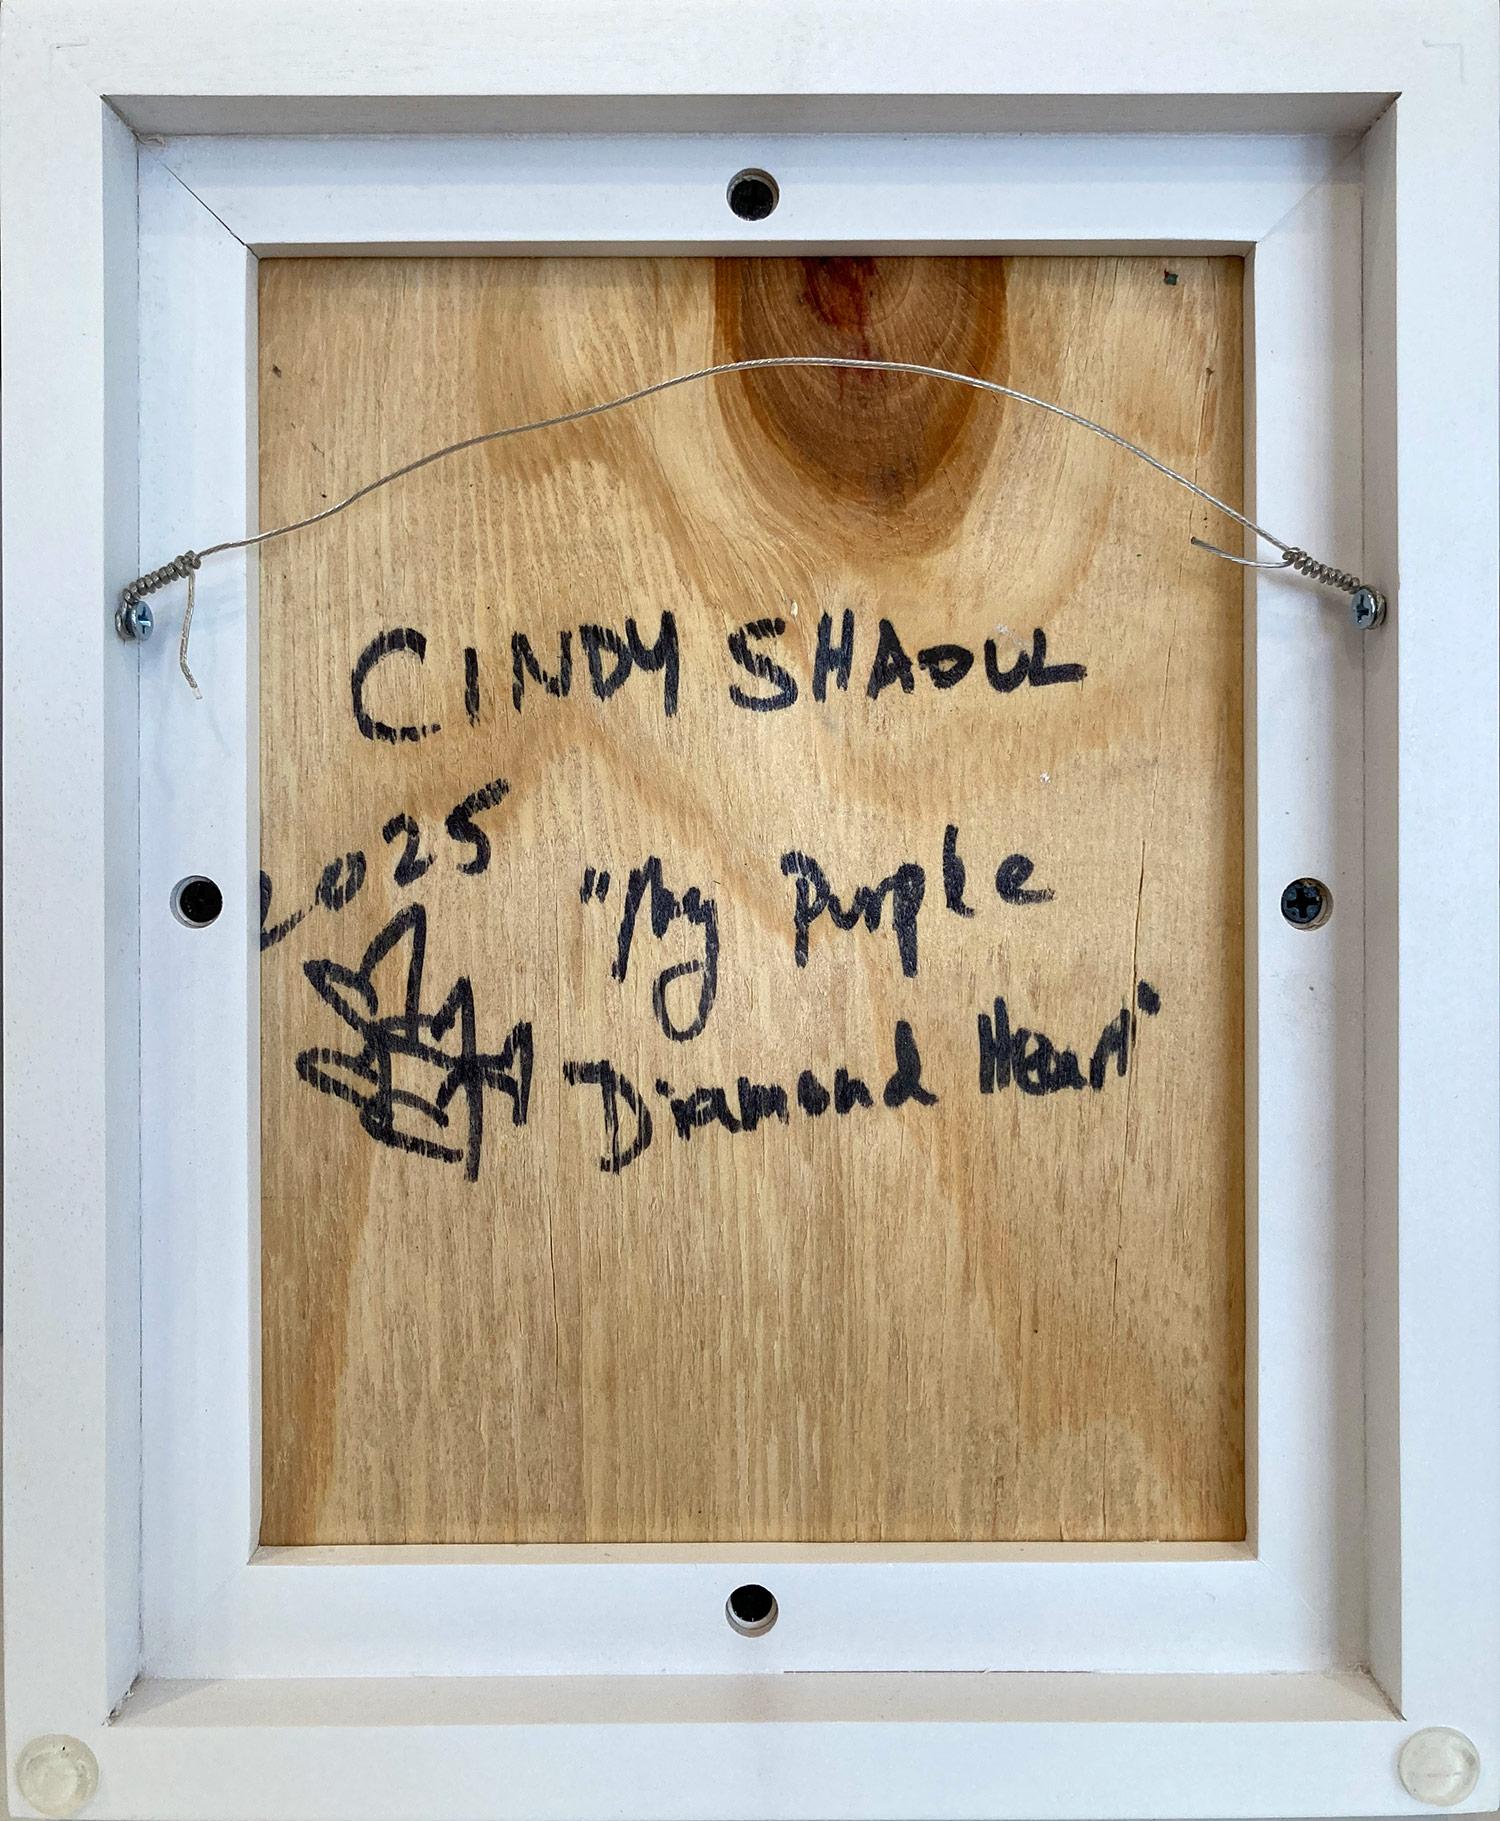 CINDY SHAOUL
2025
"My Purple
Diamond Heart"